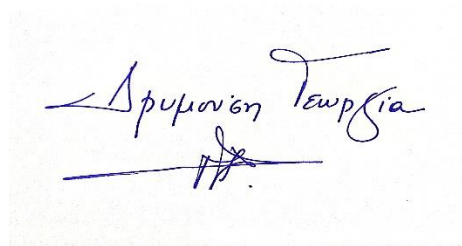 Δρυμούση Γεωργία